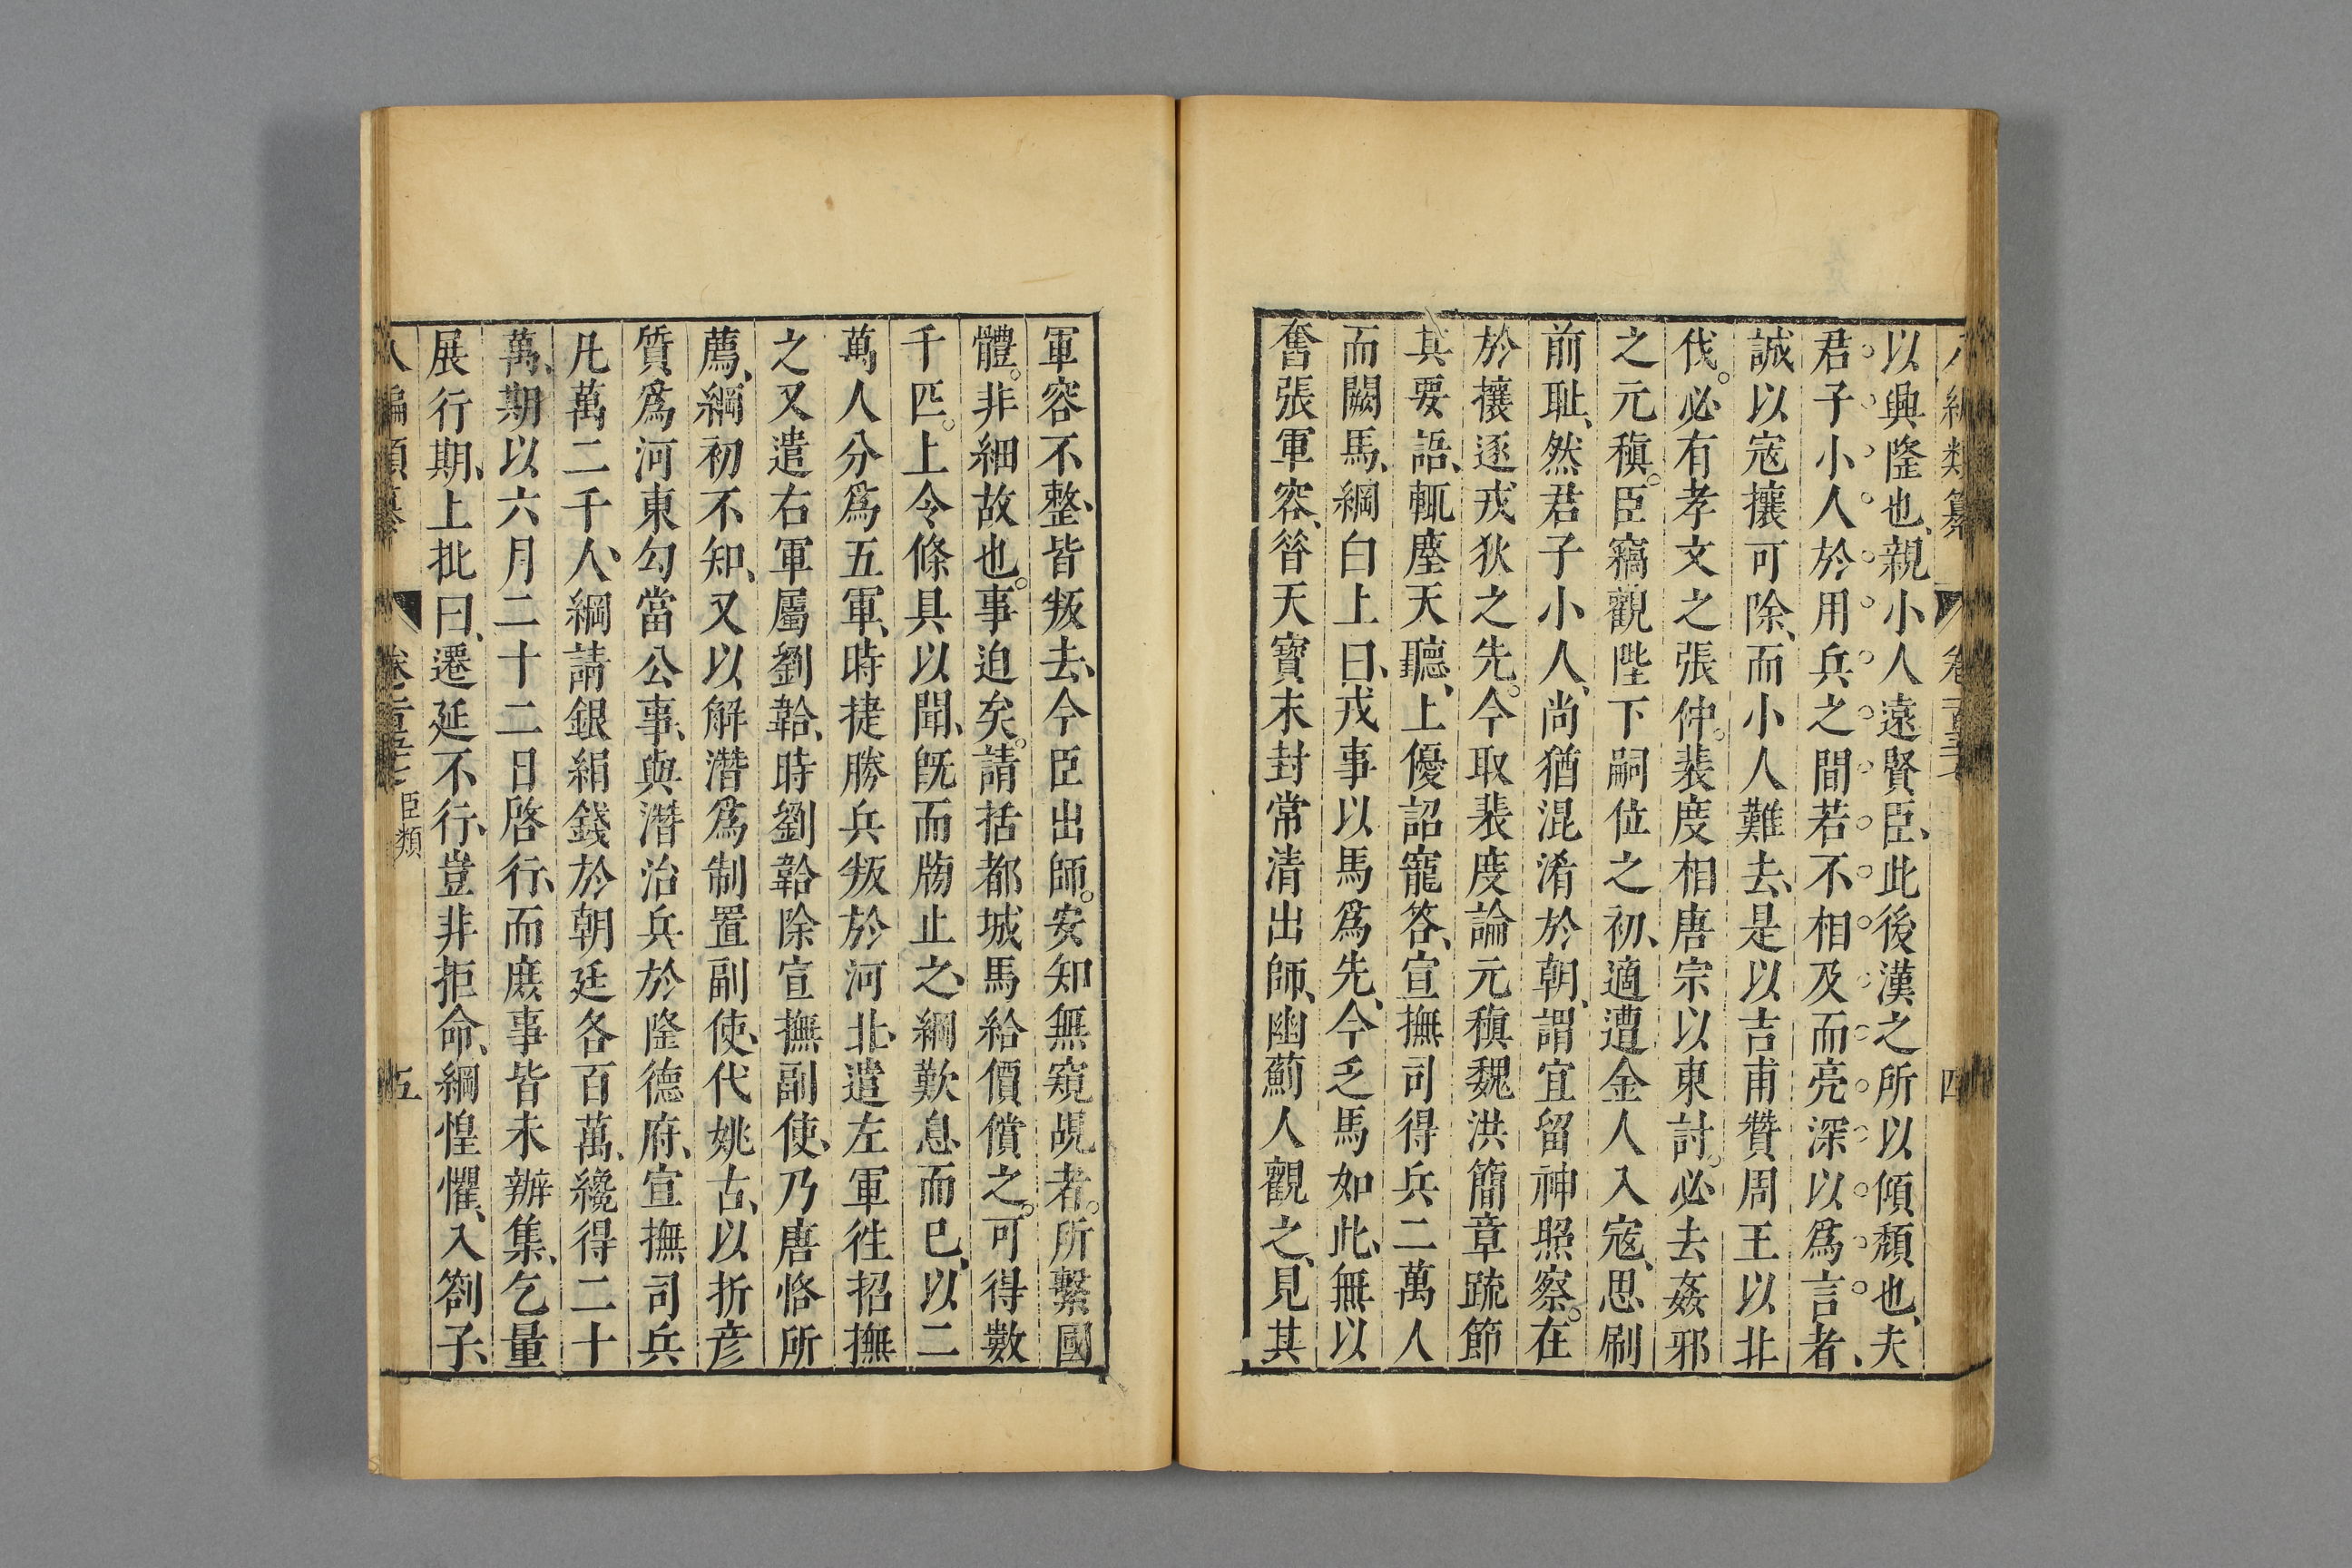 以興隆也、親小人遠賢臣、此後漢之所以傾頹也、夫
君子小人於用兵之間若不相及而亮深以爲言者、
誠以寇攘可除、而小人難去、是以吉甫贊周王以北
伐。必有孝文之張仲。裴度相唐宗以東討。必去姦邪
之元稹。臣竊觀陛下嗣位之初、適遭金人入寇、思刷
前耻、然君子小人、尚猶混淆於朝、謂宜留神照察。在
於攘逐戎狄之先。今取裴度論元稹魏洪簡章疏節
其要語、輒塵天聽、上優詔寵答、宣撫司得兵二萬人
而闕馬、綱白上曰、戎事以馬爲先、今乏馬如此、無以
奮張軍容、昝天寶末封常清出師、幽薊人觀之、見其
軍容不整、皆叛去、今臣出師。安知無窺覘者。所繫國
體。非細故也。事迫矣。請括都城馬給價償之。可得數
千匹。上令條具以聞、旣而牓止之、綱歎息而已、以二
萬人分爲五軍、時捷勝兵叛於河北、遣左軍徃招撫
之又遣右軍屬劉韐、時劉韐除宣撫副使、乃唐恪所
薦、綱初不知、又以解潛爲制置副使、代姚古、以折彦
質爲河東勾當公事、與潛治兵於隆德府、宣撫司兵
凡萬二千人、綱請銀絹錢於朝廷各百萬、纔得二十
萬、期以六月二十二日啓行、而庶事皆未辦集、乞量
展行期、上批曰、遷延不行、豈非拒命、綱惶懼、入劄子、
臣類
五